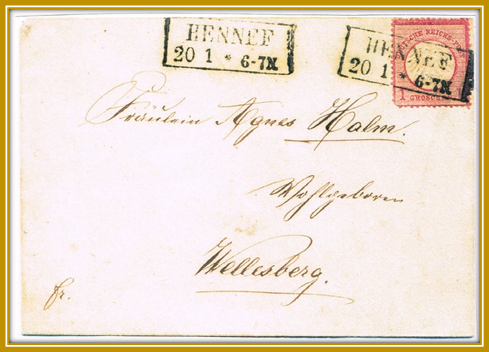 HENNEF
20 1 * 6-7N.
HENNEF
20 1 * 6-7N.
DEUTSCHE REICHS-POST
1 GROSCHEN
Fräulein Agnes Halm.
Wohlgeboren
Wellesberg.
fr.